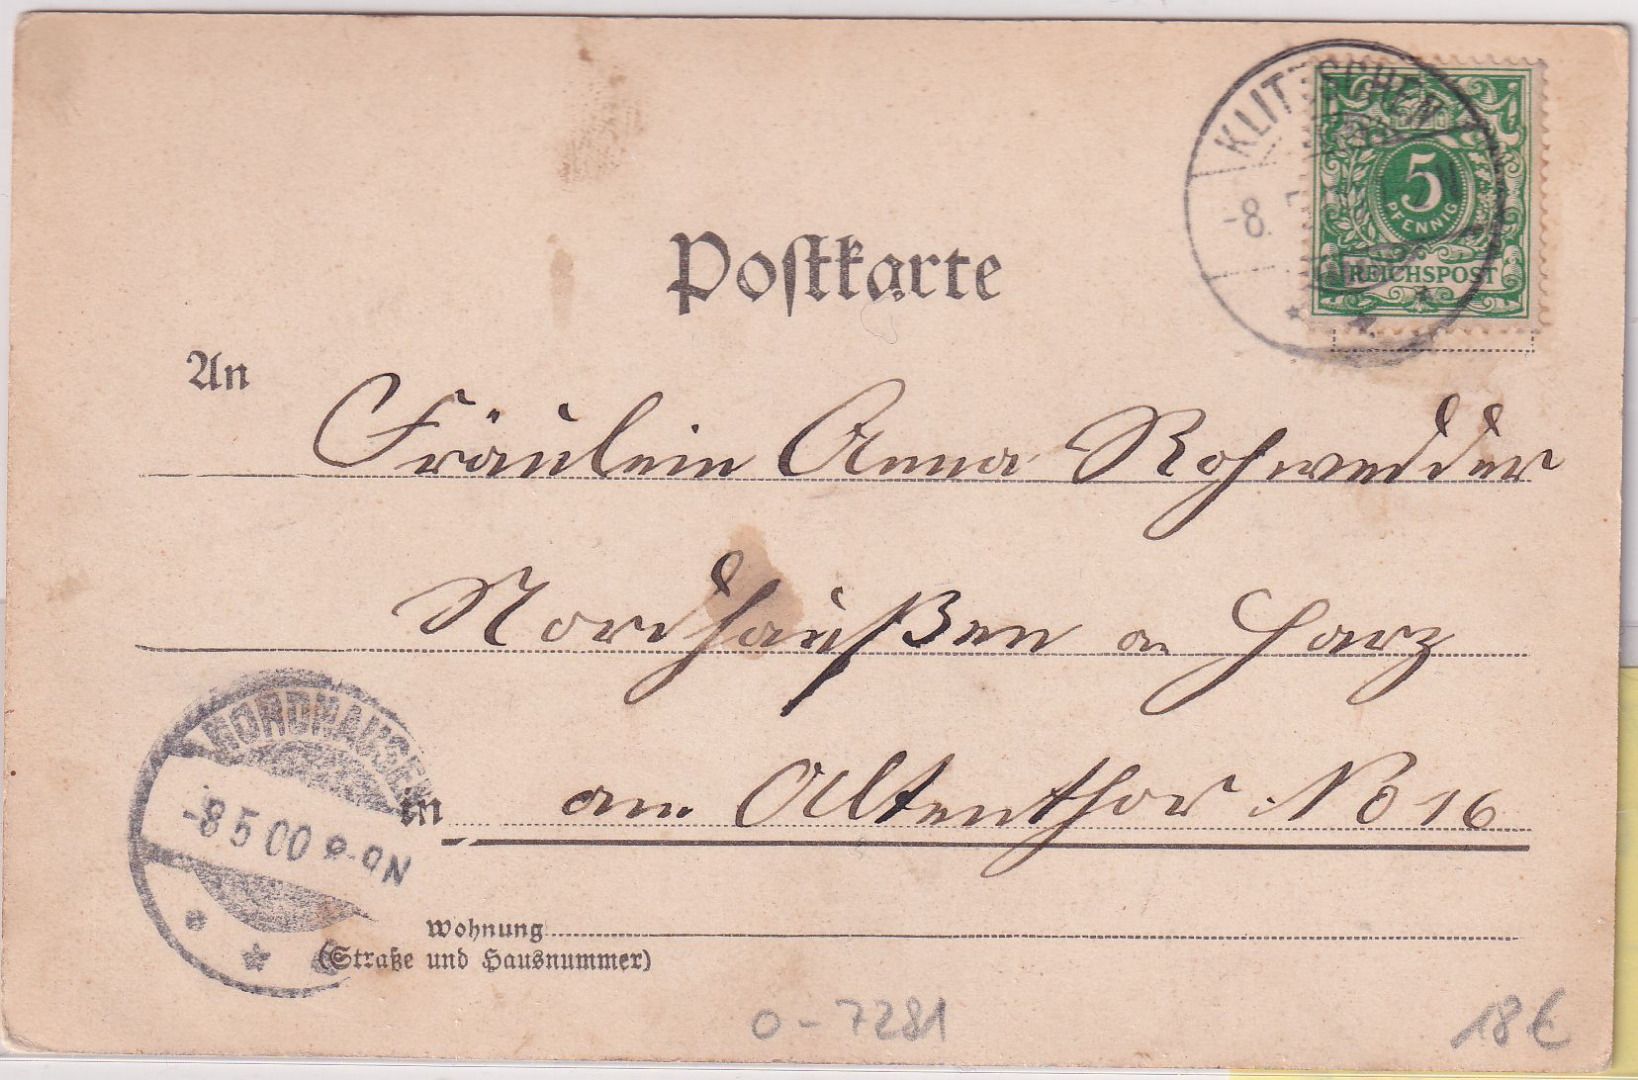 KLITZSCHEN
-8.
5
PFENNIG
REICHSPOST
Postkarte
An
Fräulein Anna Rohwedder
Nordhaußen a Harz
NORDHAUSEN
-8 5 00 8-9N
in am Altenthor No 16
Wohnung
(Straße und Hausnummer)
0-7281
18 €